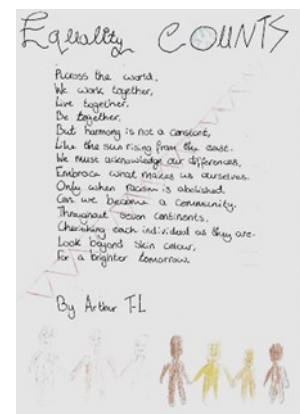 Equality COUNTS
Across the world,
We work together,
Live together,
Be together,
But harmony is not a constant,
Like the sun rising from the east.
We must acknowledge our differences,
Embrace what makes us ourselves.
Only when racism is abolished
Can we become a community.
Throughout seven continents,
Cherishing each individual as they are.
Look beyond skin colour,
For a brighter tomorrow.
By Arthur T-L